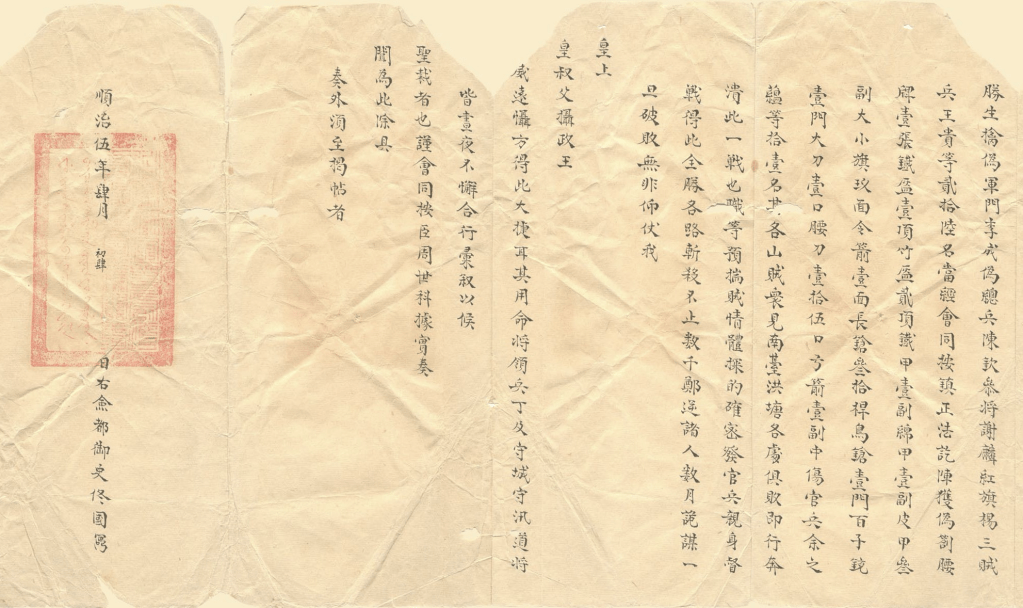 勝生擒偽軍門李成偽總兵陳欽叅將謝麟紅旗楊三賊
兵王貴等貳拾陸名當經會同按鎮正法訖陳獲偽劄腰
牌壹張鐵盔壹項竹盔貳項鐵甲壹副綿甲壹副皮甲叁
副大小旗玖面令箭壹面長鎗叁拾桿鳥鎗壹門百子銃
壹門大刀壹口腰刀壹拾伍口弓箭壹副中傷官兵余之
等拾壹名其各山賊衆見南臺洪塘各處俱敗即行奔
潰此一戰也職等預揣賊情體探的確密發官兵親身督
戰得此全勝各路斬殺不止數千鄭逆諸人數月詭謀一
旦破敗無非仰仗我
皇上
皇叔父攝政王
威遠懾方得此大捷耳其用命將領兵丁及守城守汛道將
皆晝夜不懈合行彚叙以候
聖裁者也謹會同按臣周世科據實奏
聞為此除具
奏外須至揭帖者
順治伍年肆月 初肆 日右僉都御史佟國鼐